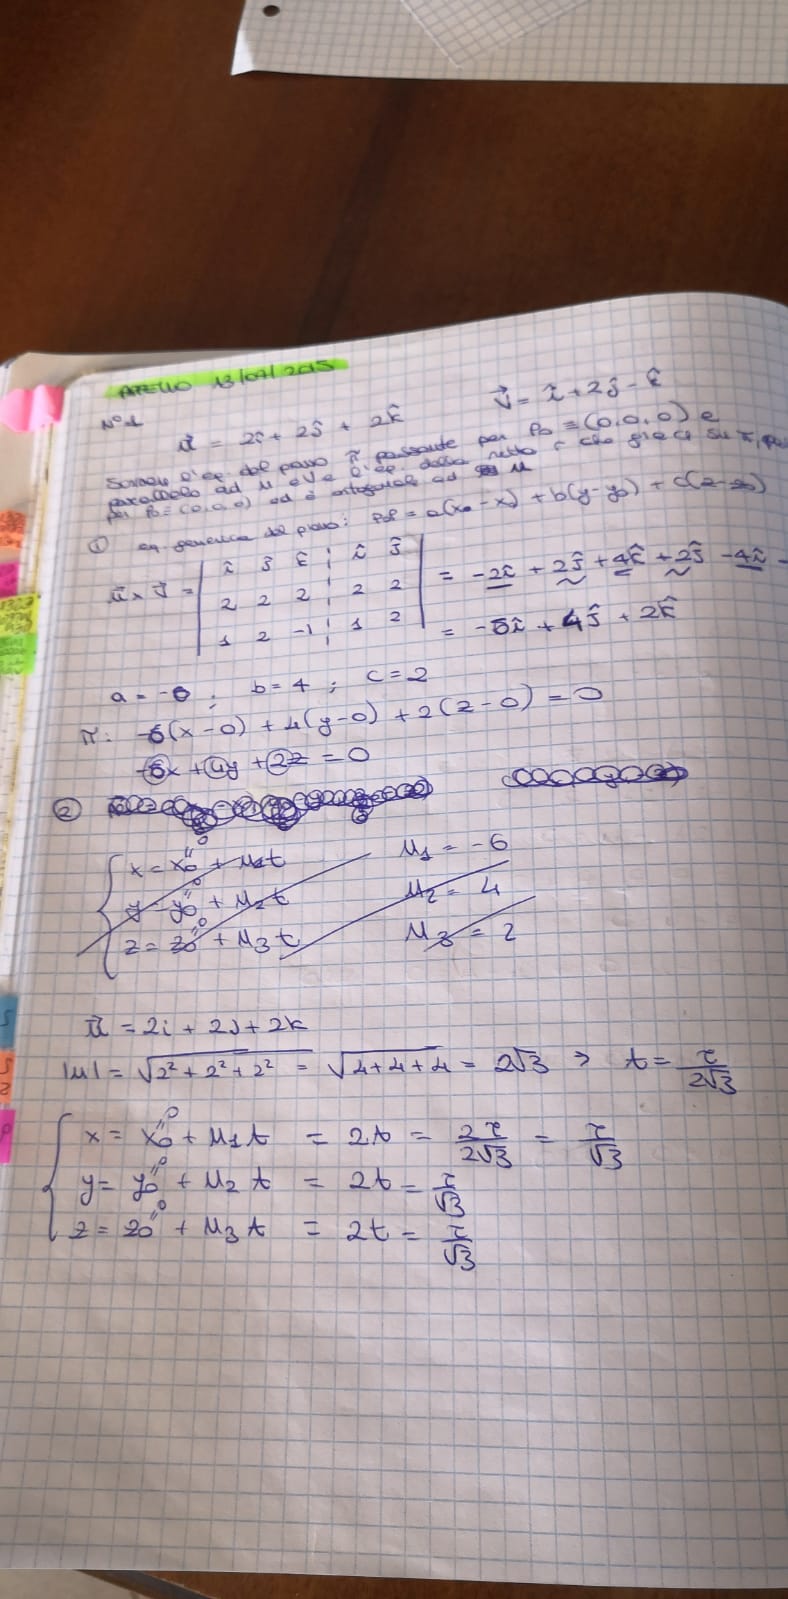 APPELLO 13/07/2015
N°1
u⃗ = 2î + 2ĵ + 2k̂    v⃗ = î + 2ĵ - k̂
eq. del piano π passante per P₀ ≡ (0,0,0) e
parallelo ad u e v e l'eq. della retta r che giace su π,
per P₀ ≡ (0,0,0) ed è ortogonale ad u
① eq. generica del piano: = a(x₀ - x) + b(y - y₀) + c(z - z₀)
u⃗ x v⃗ = | î ĵ k̂ ¦ î ĵ |
| 2 2 2 ¦ 2 2 | = -2î + 2ĵ + 4k̂ + 2ĵ - 4î -
| 1 2 -1 ¦ 1 2 | = -6î + 4ĵ + 2k̂
a = -6 ; b = 4 ; c = 2
π: -6(x - 0) + 4(y - 0) + 2(z - 0) = 0
-6x + 4y + 2z = 0
②
x = x₀ + u₁t    u₁ = -6
y = y₀ + u₂t    u₂ = 4
z = z₀ + u₃t    u₃ = 2
u⃗ = 2i + 2j + 2k
|u| = √2² + 2² + 2² = √4 + 4 + 4 = 2√3 ⇒ t = τ/2√3
x = x₀ + u₁t = 2t = 2τ/2√3 = τ/√3
y = y₀ + u₂t = 2t = τ/√3
z = z₀ + u₃t = 2t = τ/√3